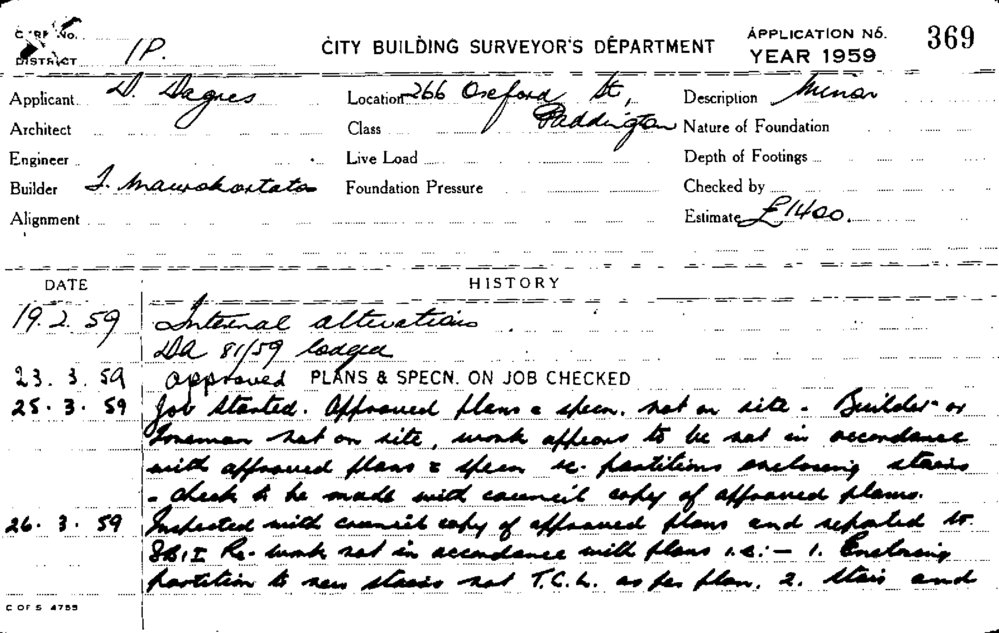 CARD No.
DISTRICT 1P.
CITY BUILDING SURVEYOR'S DEPARTMENT
APPLICATION No. 369
YEAR 1959
Applicant D. Dagres Location 266 Oxford St, Paddington Description Minor
Architect Class Nature of Foundation
Engineer Live Load Depth of Footings
Builder Foundation Pressure Checked by
Alignment Estimate £1400.
DATE HISTORY
19.2.59 Internal alterations
DA 81/59 lodged
23.3.59 approved PLANS & SPECN. ON JOB CHECKED
25.3.59 Job started. Approved plans & specn. not on site - Builder or
foreman not on site, work appears to be not in accordance
with approved plans & specn re. partitions enclosing stairs
- check to be made with council copy of approved plans.
26.3.59 Inspected with council copy of approved plans and reported to
S.B.I Re- work not in accordance with plans i.e:- 1. Enclosing
partition to new stairs not T.C.L. as per plan, 2. stair and
C OF S 4755